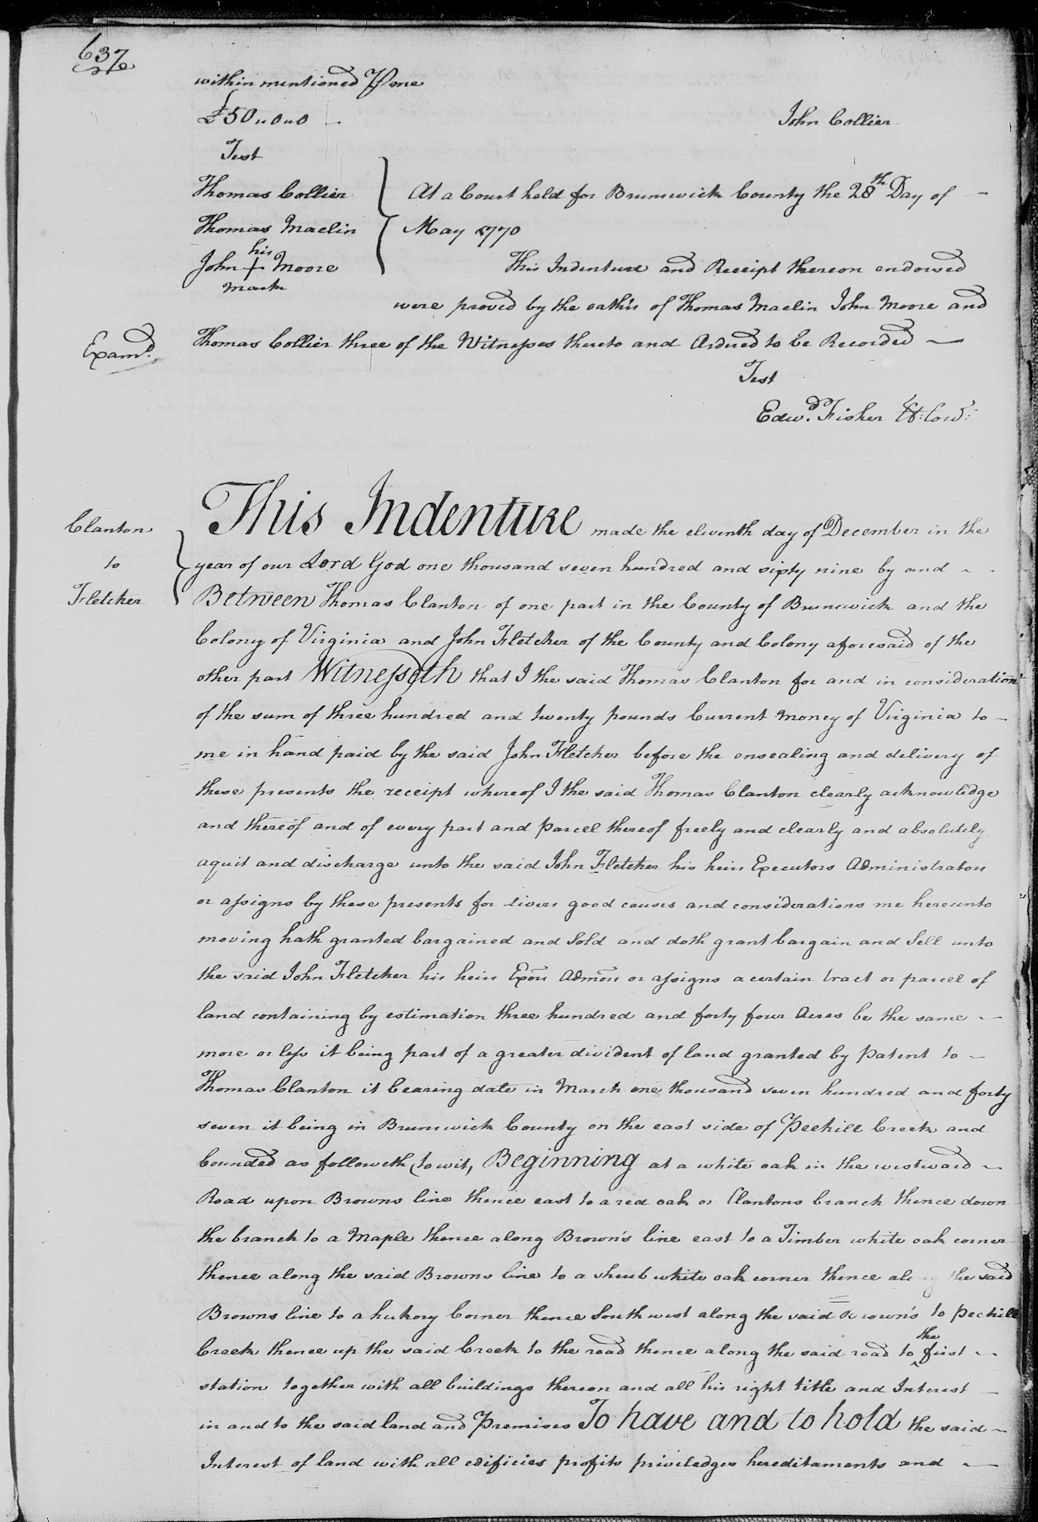 637
within mentioned P me
£50"0"0
John Collier
Test
Thomas Collier
At a Court held for Brunswick County the 28th Day of
Thomas Maclin
May 1770
his
John + Moore
mark
This Indenture and Receipt thereon endorsed
were proved by the oaths of Thomas Maclin John Moore and
Examd.
Thomas Collier three of the Witnesses thereto and Ordred to be Recorded
Test
Edwd. Fisher
Clanton
to
Fletcher
This Indenture made the eleventh day of December in the
year of our Lord God one thousand seven hundred and sixty nine by and
Between Thomas Clanton of one part in the County of Brunswick and the
Colony of Virginia and John Fletcher of the County and Colony aforesaid of the
other part Witnesseth that I the said Thomas Clanton for and in consideration
of the sum of three hundred and twenty pounds Current money of Virginia to
me in hand paid by the said John Fletcher before the ensealing and delivery of
these presents the receipt whereof I the said Thomas Clanton clearly acknowledge
and thereof and of every part and parcell thereof freely and clearly and absolutely
aquit and discharge unto the said John Fletcher his heirs Executors Administrators
or assigns by these presents for divers good causes and considerations me hereunto
moving hath granted bargained and Sold and doth grant bargain and Sell unto
the said John Fletcher his heirs Exors Admors or assigns a certain tract or parcel of
land containing by estimation three hundred and forty four Acres be the same
more or less it being part of a greater divident of land granted by Patent to
Thomas Clanton it bearing date in March one thousand seven hundred and forty
seven it being in Brunswick County on the east side of Peehill Creek and
bounded as followeth (to wit, Beginning at a white oak in the westward
Road upon Browns line thence east to a red oak or Clantons branch thence down
the branch to a Maple thence along Brown's line east to a Timber white oak corner
thence along the said Browns line to a shrub white oak corner thence along the said
Browns line to a hickory Corner thence Southwest along the said Brown's to Peehill
Creek thence up the said Creek to the road thence along the said road to the first
station together with all buildings thereon and all his right title and Interest
in and to the said land and Premises To have and to hold the said
Interest of land with all edificies profits priviledges hereditaments and